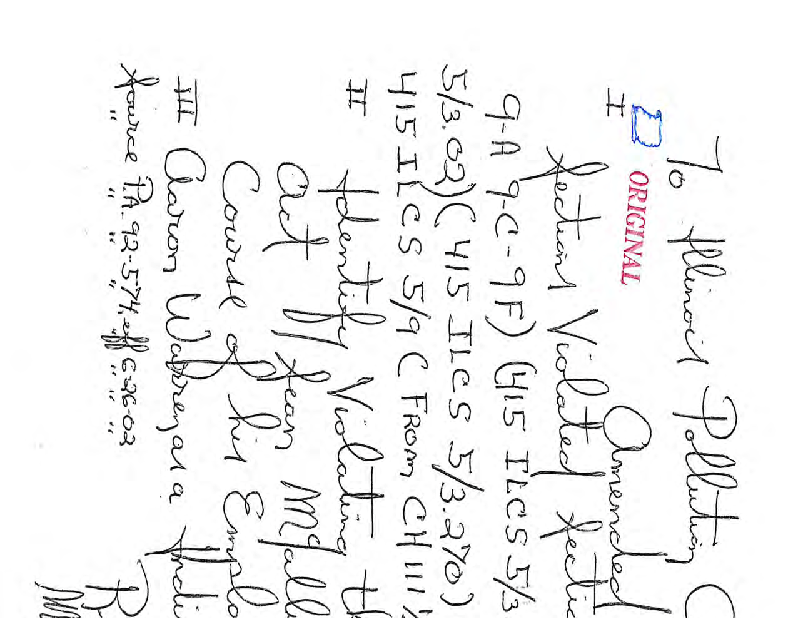 To Illinois Pollution C
Amended
ORIGINAL
I Section Violated Sectio
9-A 9-C-9F) (415 ILCS 5/3
5/3.02) (415 ILCS 5/3.270)
415 ILCS 5/9 (FROM CH 111 1/
II Identify Violating th
act Sean
Course of his Emplo
III Aaron a Indi
Source P.A. 92-574, eff 6-26-02
" " " " " "